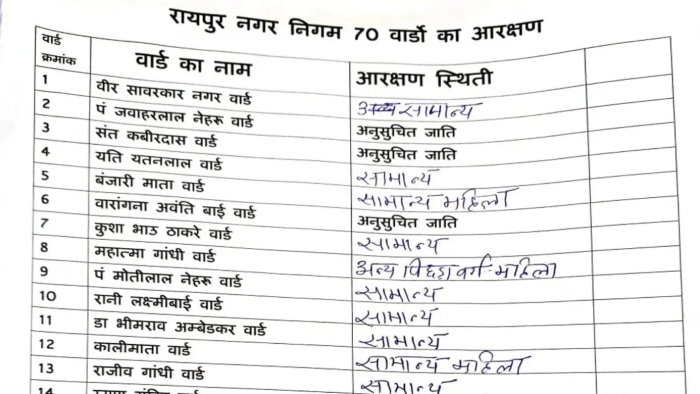 रायपुर नगर निगम 70 वार्डो का आरक्षण
वार्ड क्रमांक वार्ड का नाम आरक्षण स्थिती
1 वीर सावरकार नगर वार्ड सामान्य
2 पं जवाहरलाल नेहरू वार्ड अनुसुचित जाति
3 संत कबीरदास वार्ड अनुसुचित जाति
4 यति यतनलाल वार्ड सामान्य
5 बंजारी माता वार्ड सामान्य महिला
6 वारांगना अवंति बाई वार्ड अनुसुचित जाति
7 कुशा भाउ ठाकरे वार्ड सामान्य
8 महात्मा गांधी वार्ड अन्य पिछड़ा वर्ग महिला
9 पं मोतीलाल नेहरू वार्ड सामान्य
10 रानी लक्ष्मीबाई वार्ड सामान्य
11 डा भीमराव अम्बेडकर वार्ड सामान्य
12 कालीमाता वार्ड सामान्य महिला
13 राजीव गांधी वार्ड सामान्य
14